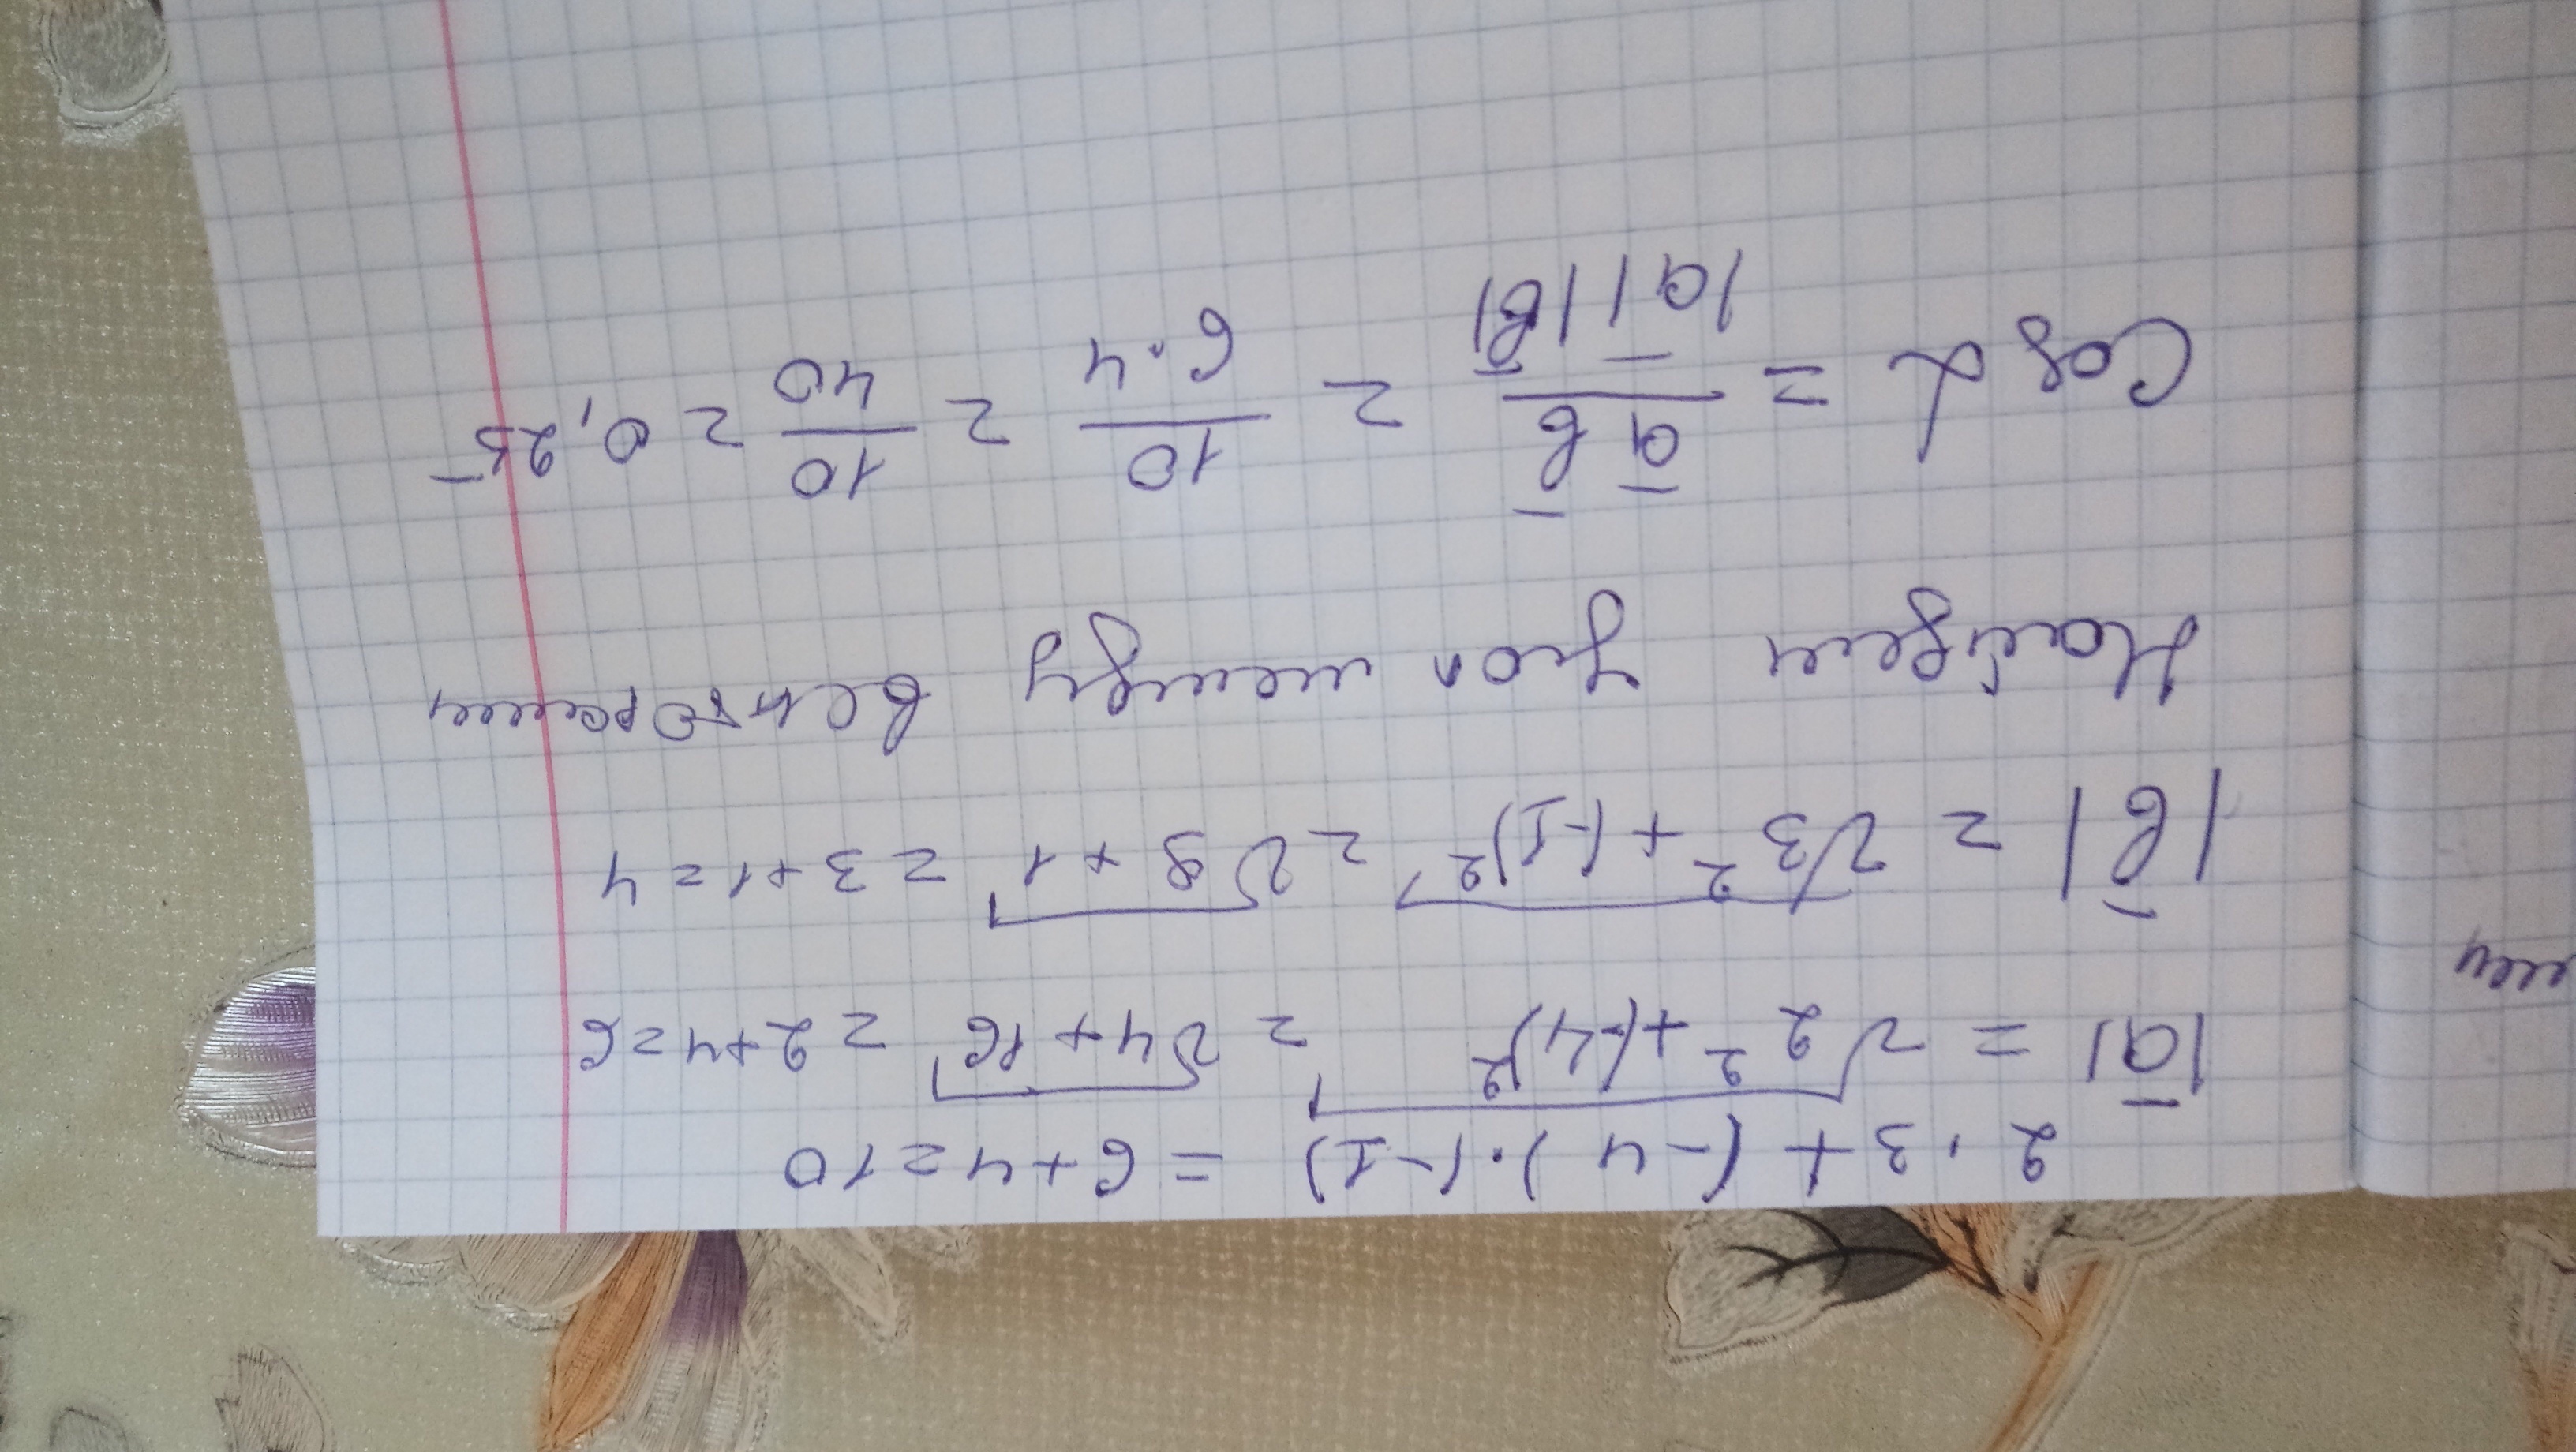 2·3+(-4)·(-1)=6+4=10
|a̅|=√2²+(-4)²=√4+16=2+4=6
|b̅|=√3²+(-1)²=√9+1=3+1=4
Найдем угол между векторами
Cos α = a̅ b̅ / |a̅||b̅| = 10/6·4 = 10/40 = 0,25